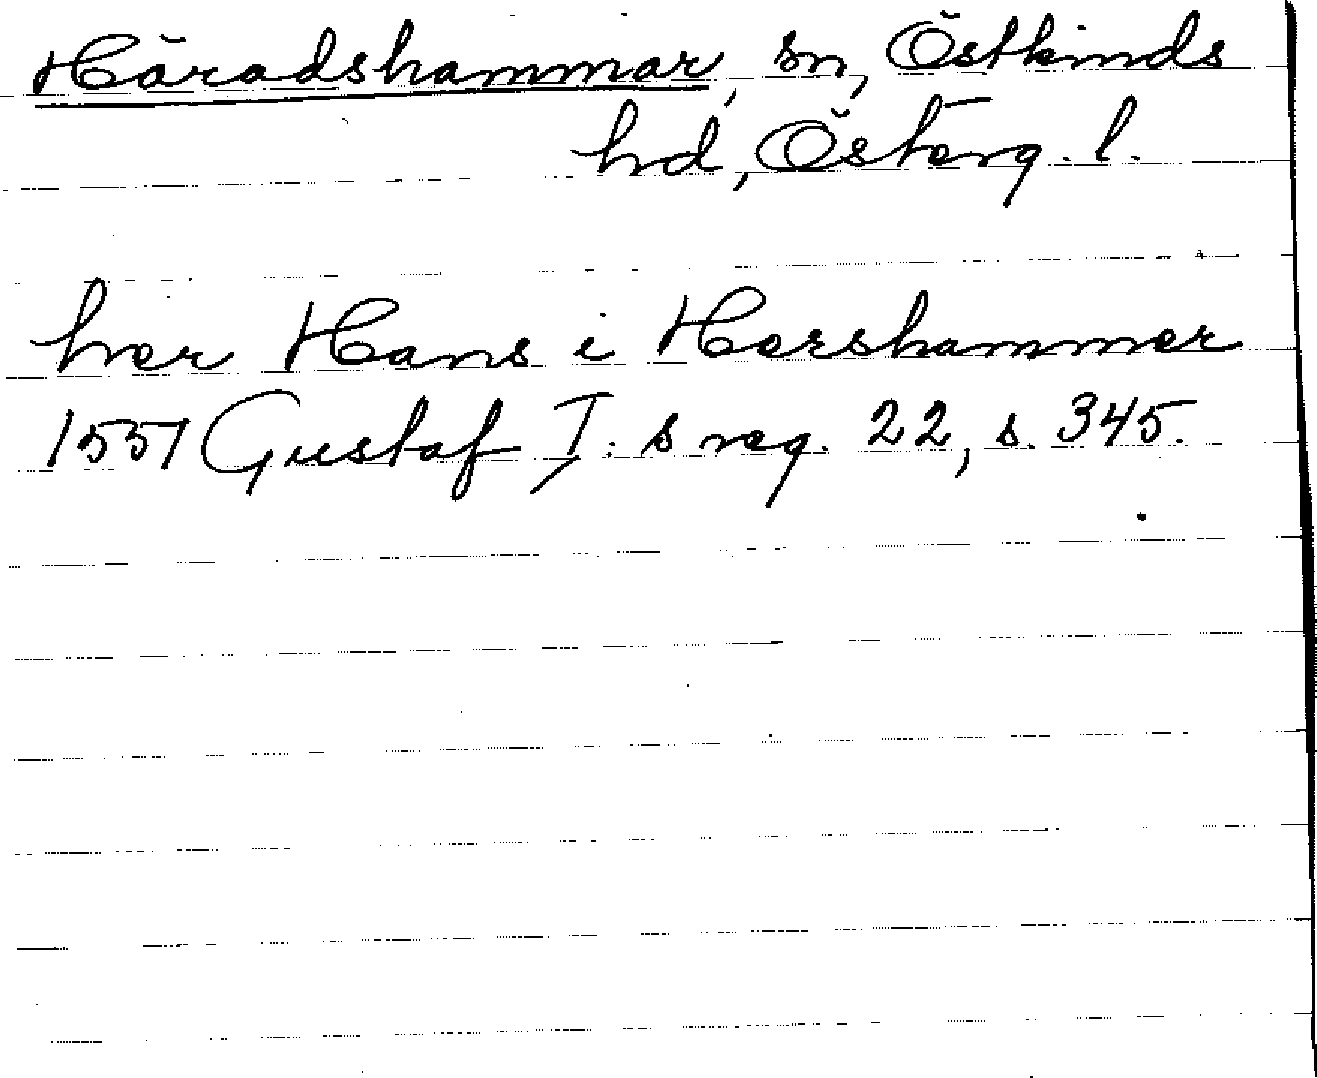 Häradshammar, sn, Östkinds
hd, Österg. l.
her Hans i Hershammer
1551 Gustaf I: s reg. 22, s. 345.